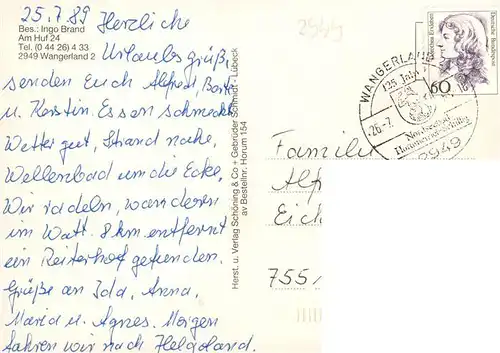 25.7.89 Herzliche
Bes.: Ingo Brand
Am Huf 24
Tel. (0 44 26) 4 33
2949 Wangerland 2
Urlaubsgrüße
senden Euch Alfred,
u. Kerstin. Essen schmeckt,
Wetter gut, Strand nahe,
Wellenbad um die Ecke.
Wir radeln, wandern
im Watt. 8 km entfernt
ein Reiterhof gefunden.
Grüße an Ida, Anna,
Maria u. Agnes. Morgen
fahren wir nach Helgoland.
Herst. u. Verlag Schöning & Co + Gebrüder Schmidt - Lübeck
av Bestellnr. Horum 154
2949
Deutsche Bundespost
60
WANGERLAND
125 Jahre
-26.-7.
Nordseebad
2949
Familie
Alf
Eich
755